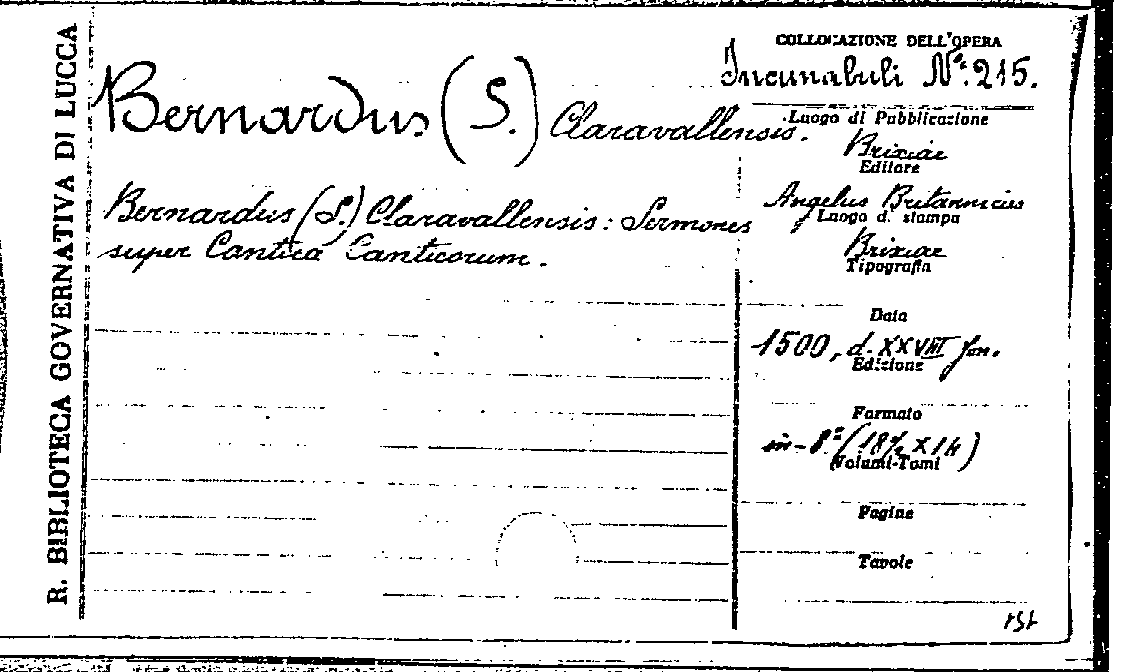 R. BIBLIOTECA GOVERNATIVA DI LUCCA
Bernardus (S.) Claravallensis.
Bernardus (S.) Claravallensis: Sermones
super Cantica Canticorum.
COLLOCAZIONE DELL'OPERA
Incunabuli Nº. 215.
Luogo di Pubblicazione
Brixiae
Editore
Angelus Britannicus
Luogo d. stampa
Brixiae
Tipografia
Data
1500, d. XXVIII Jan.
Edizione
Formato
in-8º (18½ X 14)
Volumi-Tomi
Pagine
Tavole